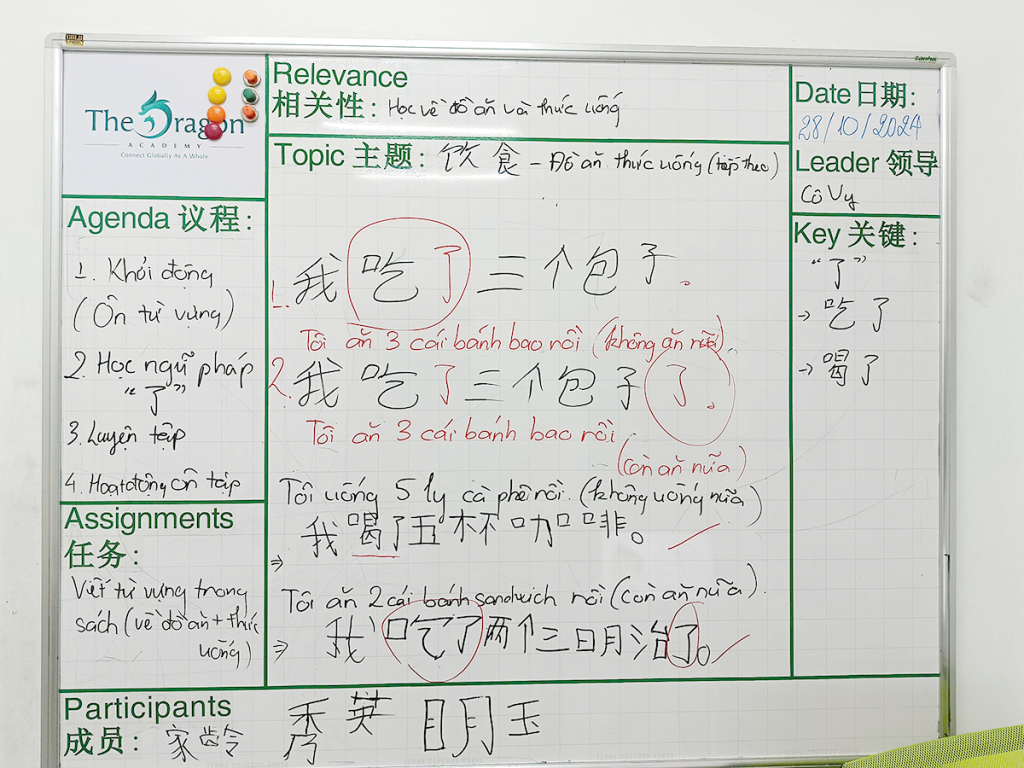 The Dragon
ACADEMY
Connect Globally As A Whole
Relevance
相关性: Học về đồ ăn và thức uống
Topic 主题: 饮食 - Đồ ăn thức uống (tiếp theo)
Date日期:
28/10/2024
Leader 领导
Cô Vy
Agenda 议程:
1. Khởi động
(Ôn từ vựng)
2. Học ngữ pháp
"了"
3. Luyện tập
4. Hoạt động ôn tập
Assignments
任务:
Viết từ vựng trong
sách (về đồ ăn + thức
uống)
1. 我吃了三个包子。
Tôi ăn 3 cái bánh bao rồi (không ăn nữa).
2. 我吃了三个包子了。
Tôi ăn 3 cái bánh bao rồi
(còn ăn nữa)
Tôi uống 5 ly cà phê rồi. (không uống nữa)
⇒ 我喝了五杯咖啡。
Tôi ăn 2 cái bánh sandwich rồi (còn ăn nữa).
⇒ 我吃了两个三明治了。
Key 关键:
"了"
→ 吃了
→ 喝了
Participants
成员: 家龄 秀英 明玉